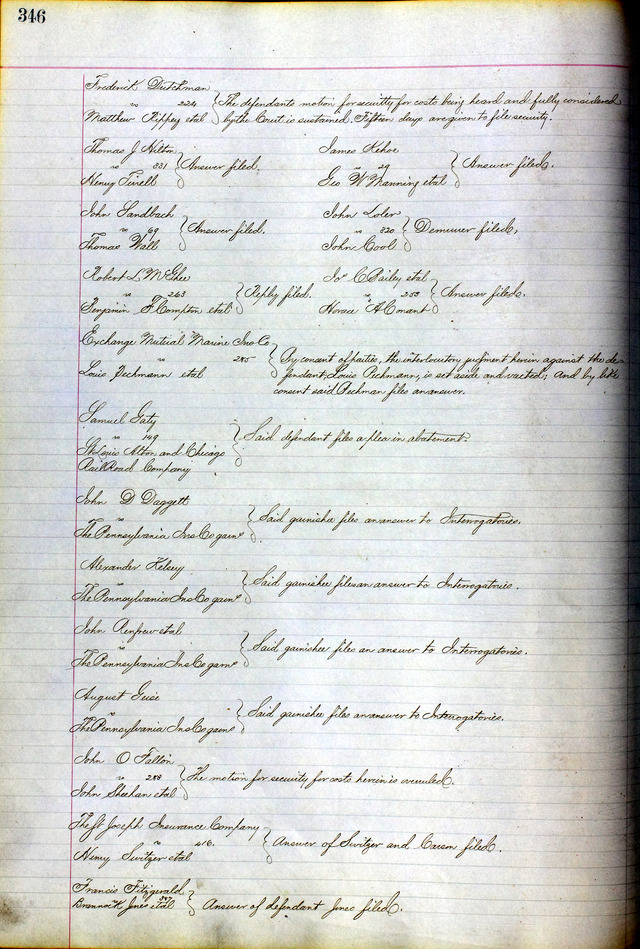 346
Frederick Dutchman
vs 224 The defendants motion for security for costs being heard and fully considered
Matthew Rippey etal by the Court is sustained. Fifteen days are given to file security.
Thomas J Hilton
vs 331 Answer filed.
Henry Tirell
James Kehoe
vs 29 Answer filed.
Geo W Manning etal
John Sandbach
vs 69 Answer filed.
Thomas Wall
John Loler
vs 320 Demurrer filed,
John Cool
Robert L McGhee
vs 263 Reply filed.
Benjamin F Compton etal
Jas C Bailey etal
vs 253 Answer filed.
Horace A Conant
Exchange Mutual Marine Ins Co
vs 285 By consent of parties, the interlocutory judgment herein against the de-
Louis Pechmann etal fendant, Louis Pechmann, is set aside and vacated; And by like
consent said Pechman files an answer.
Samuel Gaty
vs 149 Said defendant files a plea in abatement.
St Louis Alton and Chicago
Rail Road Company
John D Daggett
vs Said garnishee files an answer to Interrogatories.
The Pennsylvania Ins Co garne
Alexander Kelsey
vs Said garnishee files an answer to Interrogatories.
The Pennsylvania Ins Co garne
John Renfrew etal
vs Said garnishee files an answer to Interrogatories.
The Pennsylvania Ins Co garne
August Geise
vs Said garnishee files an answer to Interrogatories.
The Pennsylvania Ins Co garne
John O Fallon
vs 288 The motion for security for costs herein is overruled.
John Sheehan etal
The St Joseph Insurance Company
vs 416 Answer of Switzer and Carson filed.
Henry Switzer etal
Francis Fitzgerald
Brannock Jones etal Answer of defendant Jones filed.